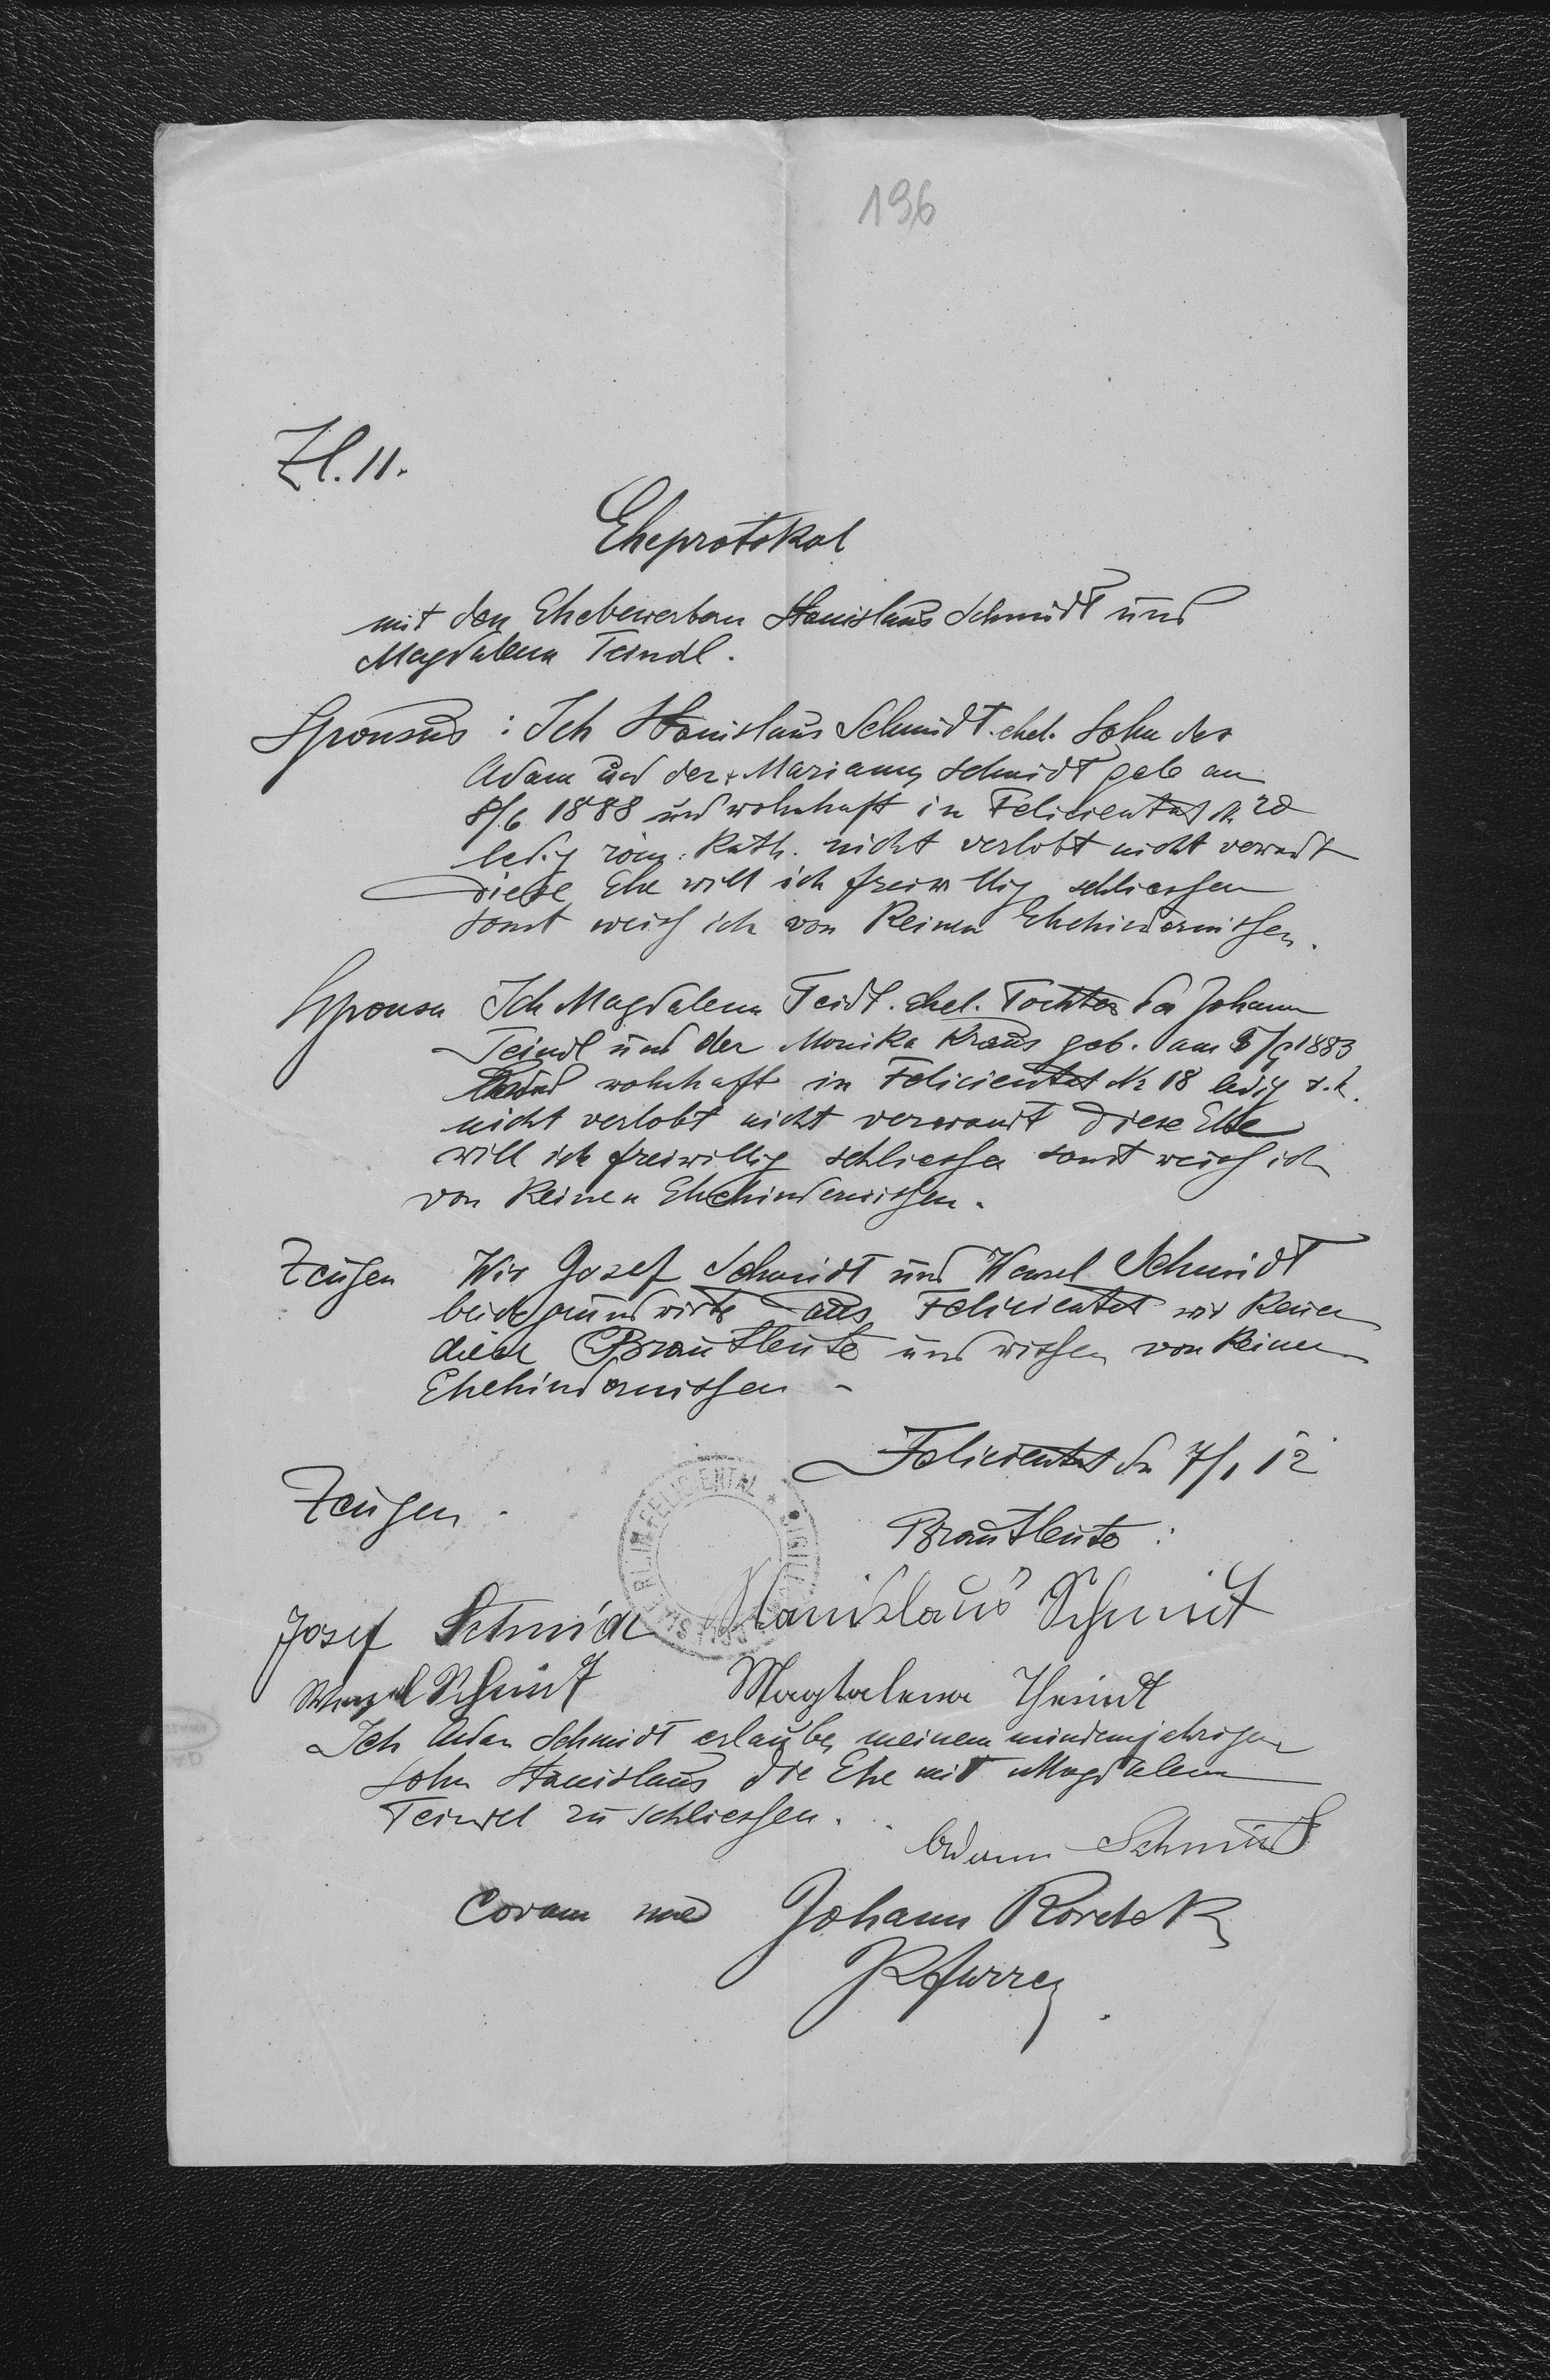 196
Zl. 11.
Eheprotokol
mit den Ehebewerbern Stanislaus Schmidt und
Magdalena Teindl.
Sponsus : Ich Stanislaus Schmidt. ehel. Sohn des
Adam und der Marianna Schmidt geb am
8/6 1888 und wohnhaft in Felicientat Nr 20
ledig röm. Kath. nicht verlobt nicht verwadt
Diese Ehe will ich freiwillig schliessen
sonst weiss ich von Keinen Ehehindernissen.
Sponsa Ich Magdalena Teidl. ehel. Tochter des Johann
Teindl und der Monika Kraus geb. am 1883
wohnhaft in Felicientat Nr 18 ledig r. k.
nicht verlobt nicht verwandt Diese Ehe
will ich freiwillig schliessen sonst weiss ich
von Keinen Ehehindernissen.
Zeugen Wir Josef Schmidt und Wenzel Schmidt
beide grundwirte aus Felicientat wir Kenen
diese Brautleute und wissen von Keinen
Ehehindernissen -
Felicientat dn 7/1 12
Zeugen.
Brautleute :
FELICIENTAL * SIGILL
Josef Schmidt Stanislaus Schmidt
Wenzel Schmidt Magdalena Theindl
Ich Adam Schmidt erlaube meinem minderjahrigen
Sohn Stanislaus die Ehe mit Magdalena
Teindel zu schliessen.
Adam Schmidt
Coram me Johann
Pfarrer